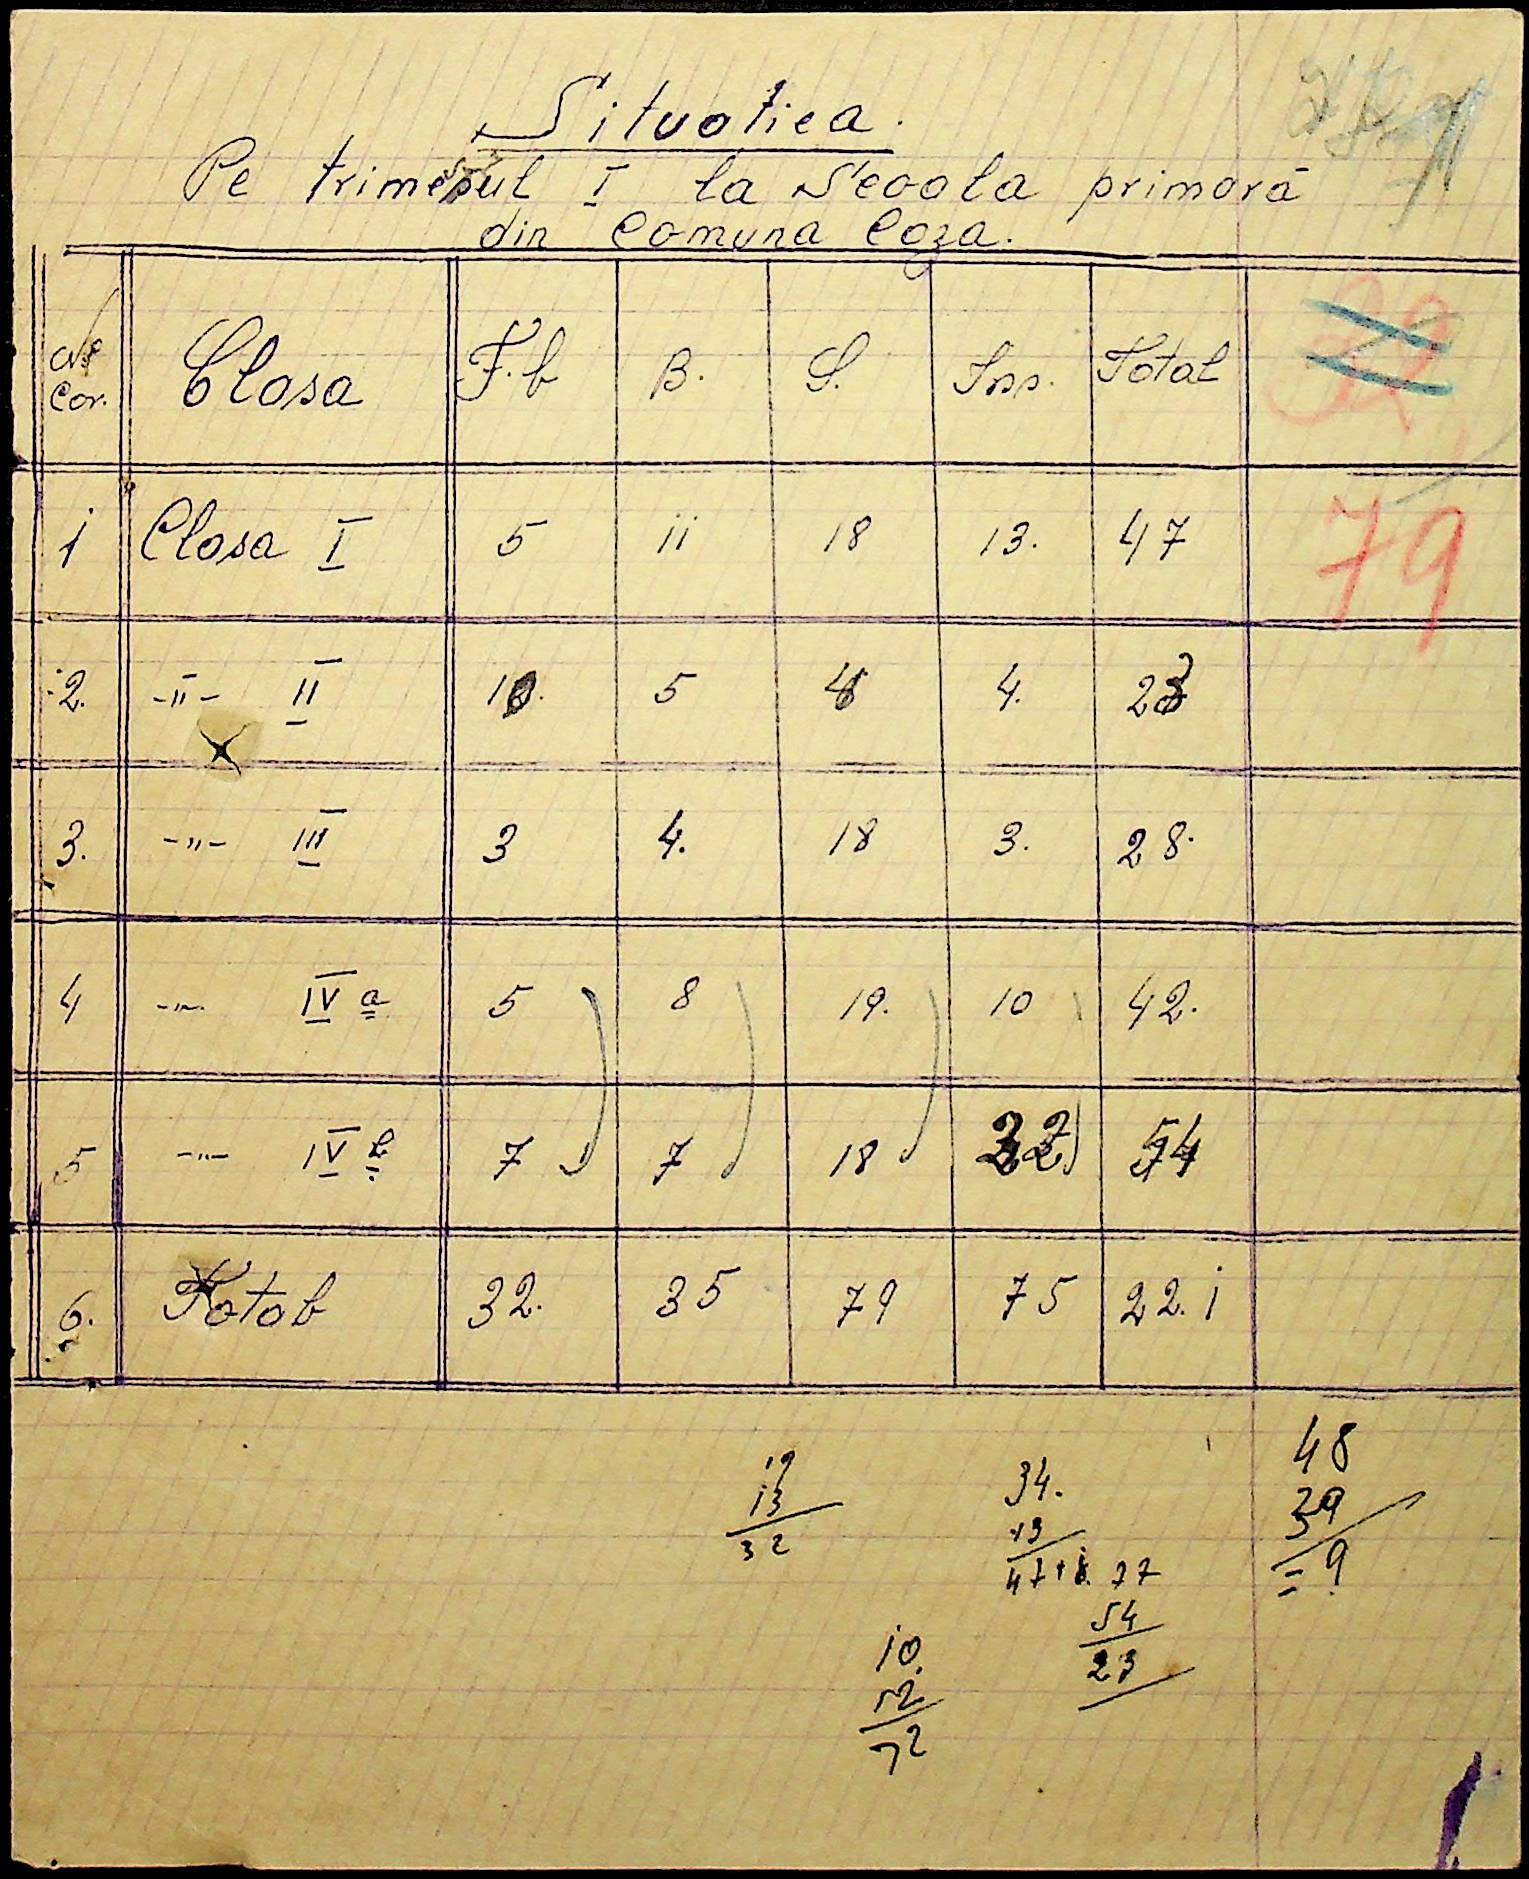 Situatiea.
Pe trimesul I la Scoala primară
din Comuna Coza.
Nr Cor. Clasa F.b B. S. Ins. Total
1 Clasa I 5 11 18 13. 47
2. -"- II 5 4. 23
3. -"- III 3 4. 18 3. 28.
4 -"- IV a 5 8 19. 10 42.
5 -"- IV b 7 7 18 22 54
6. Total 32. 35 79 75 22.1
79
19
13
32
34.
13
47+
77
54
23
48
39
= 9
10.
72